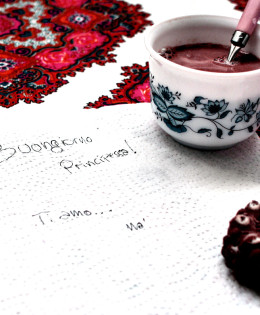 Buongiorno
Principessa!
Ti amo...
Ma'